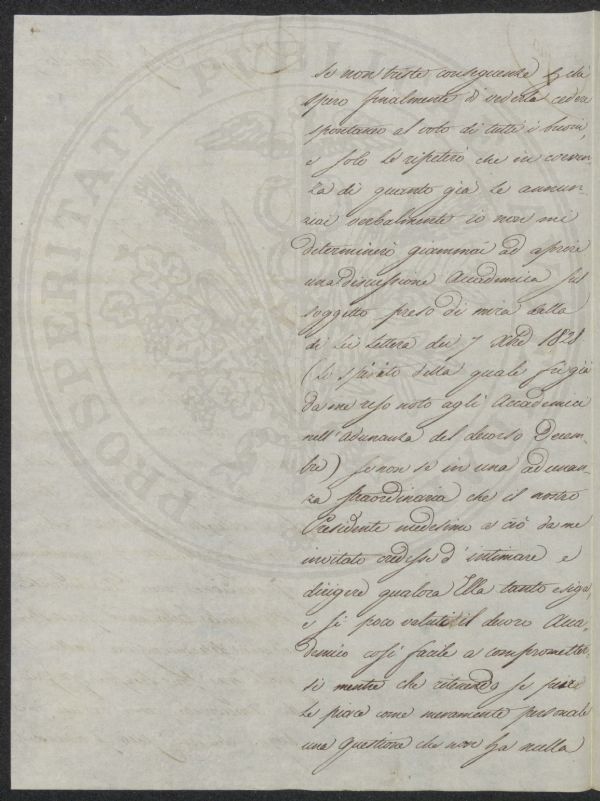 PROSPERITATI PUBLI
se non triste conseguenze e che
spero finalmente di vederla cedere
spontaneo al voto di tutti i buoni,
e solo Le ripeterò che in coeren-
za di quanto già Le annun-
ziai verbalmente io non mi
determinerò giammai ad aprire
una discussione Accademica sul
soggetto preso di mira dalla
di Lei Lettera dei 7 Xbre 1828
(Lo spirito della quale fù già
da me reso noto agli Accademici
nell'Adunanza del decorso Decem-
bre) se non se in una adunan-
za straordinaria che il nostro
Presidente medesimo a ciò da me
invitato credesse d'intimare e
dirigere qualora Ella tanto esiga
e sì poco valuti il decoro Acca-
demico così facile a compromettter-
si mentre che ritenendo se pure
Le piace come meramente personale
una questione che non ha nulla